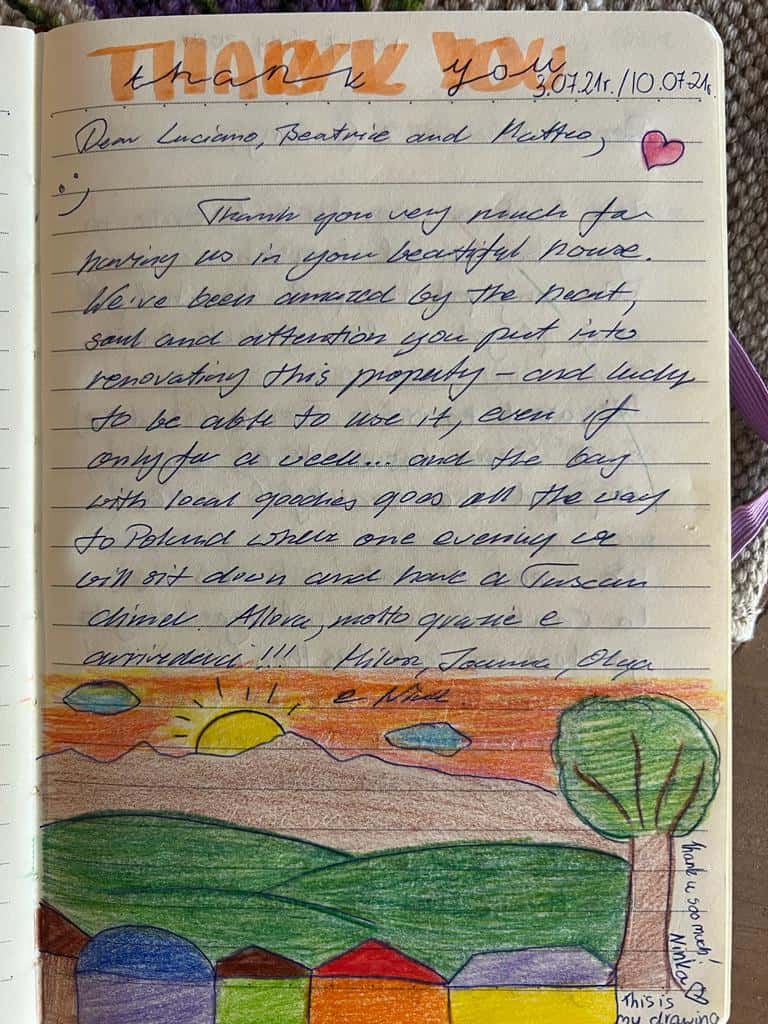 THANK YOU
thank you
3.07.21r./10.07.21r.
Dear Luciano, Beatrice and Matteo,
:)
Thank you very much for
having us in your beautiful house.
We've been amazed by the heart,
soul and attention you put into
renovating this property – and lucky
to be able to use it, even if
only for a week... and the bag
with local goodies goes all the way
to Poland where one evening we
will sit down and have a Tuscan
dinner. Allora, molto grazie e
arrivederci!!! Joanna, Olga
e
thank u soo much!
Ninka
This is
my drawing